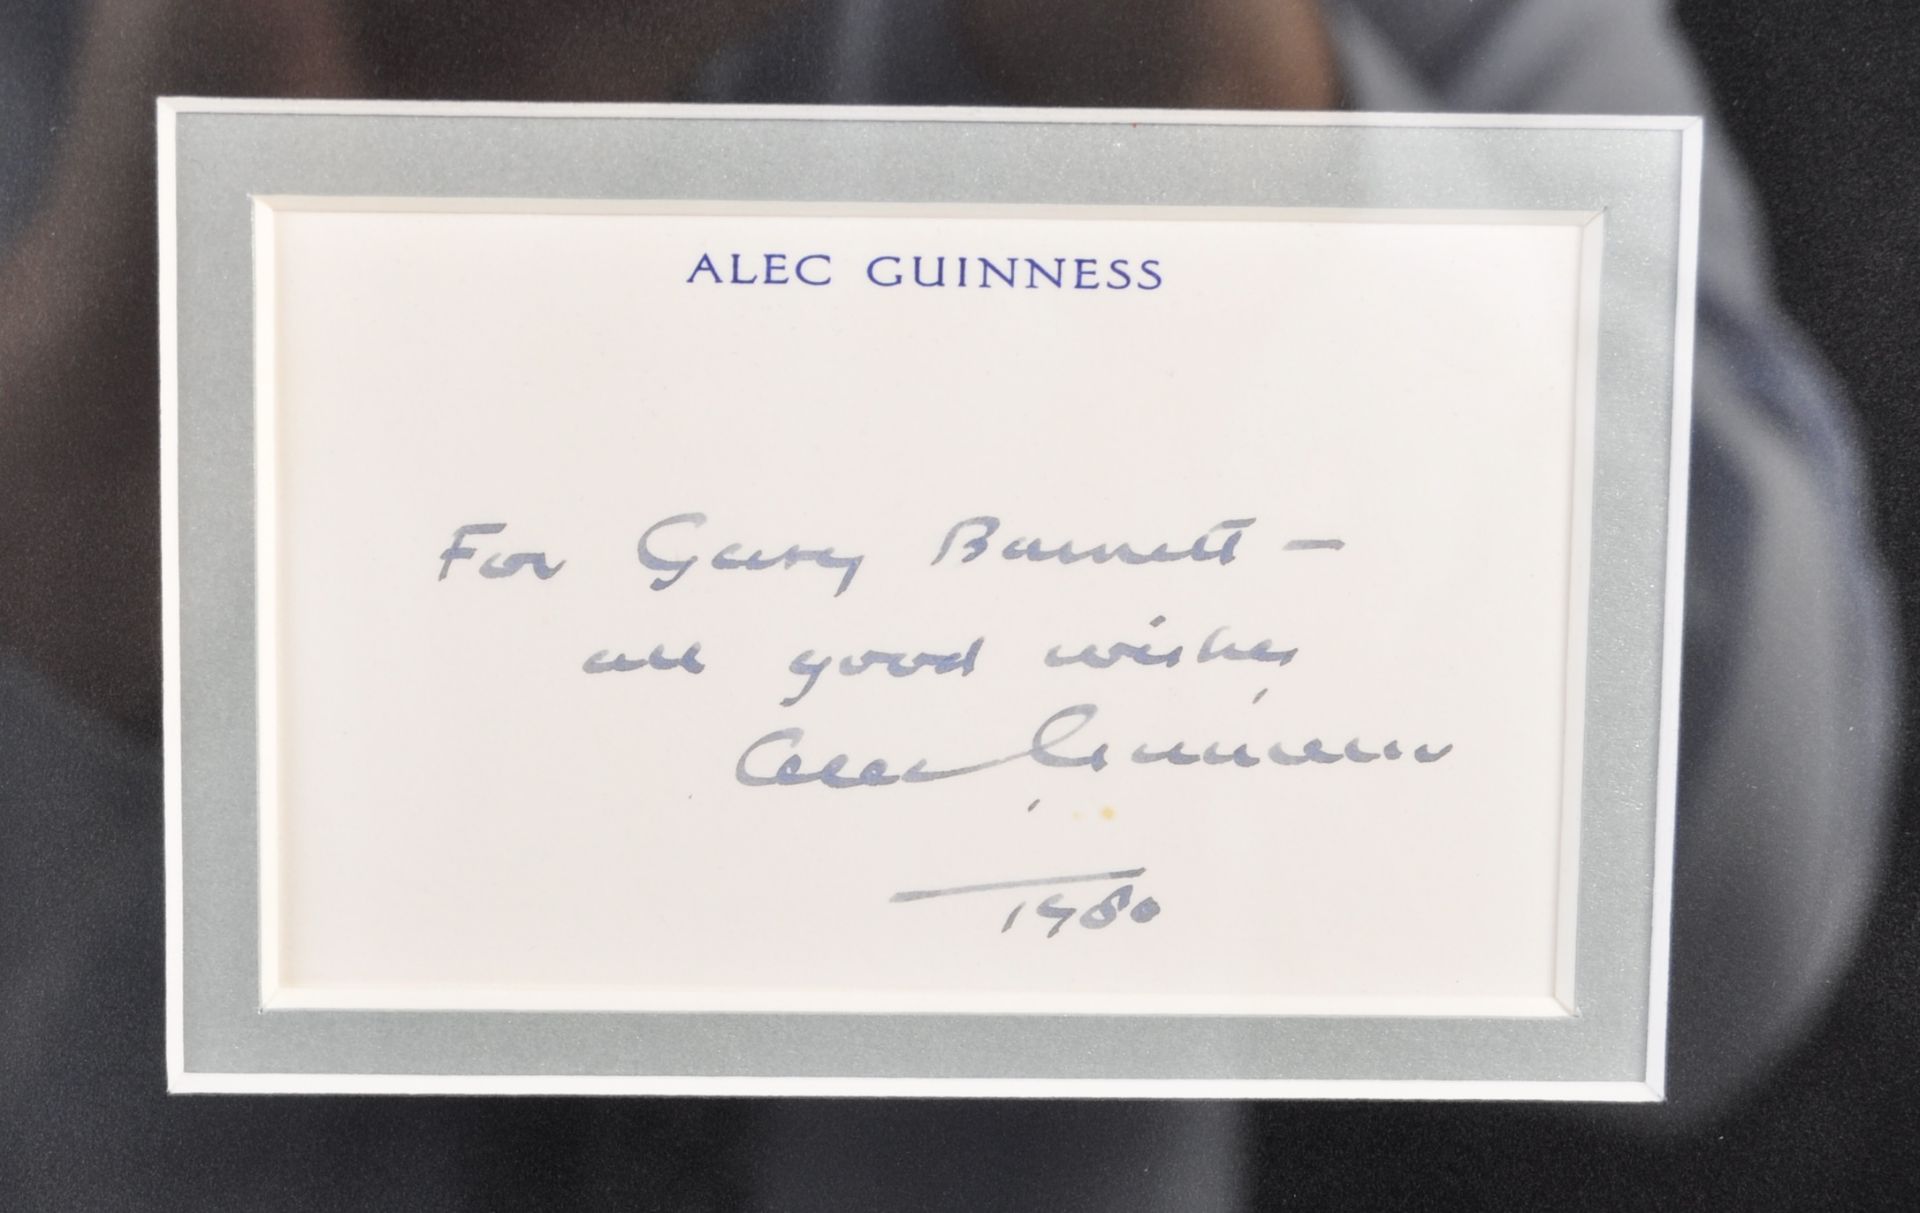 ALEC GUINNESS
For Gary Barnett —
all good wishes
Alec Guinness
1980